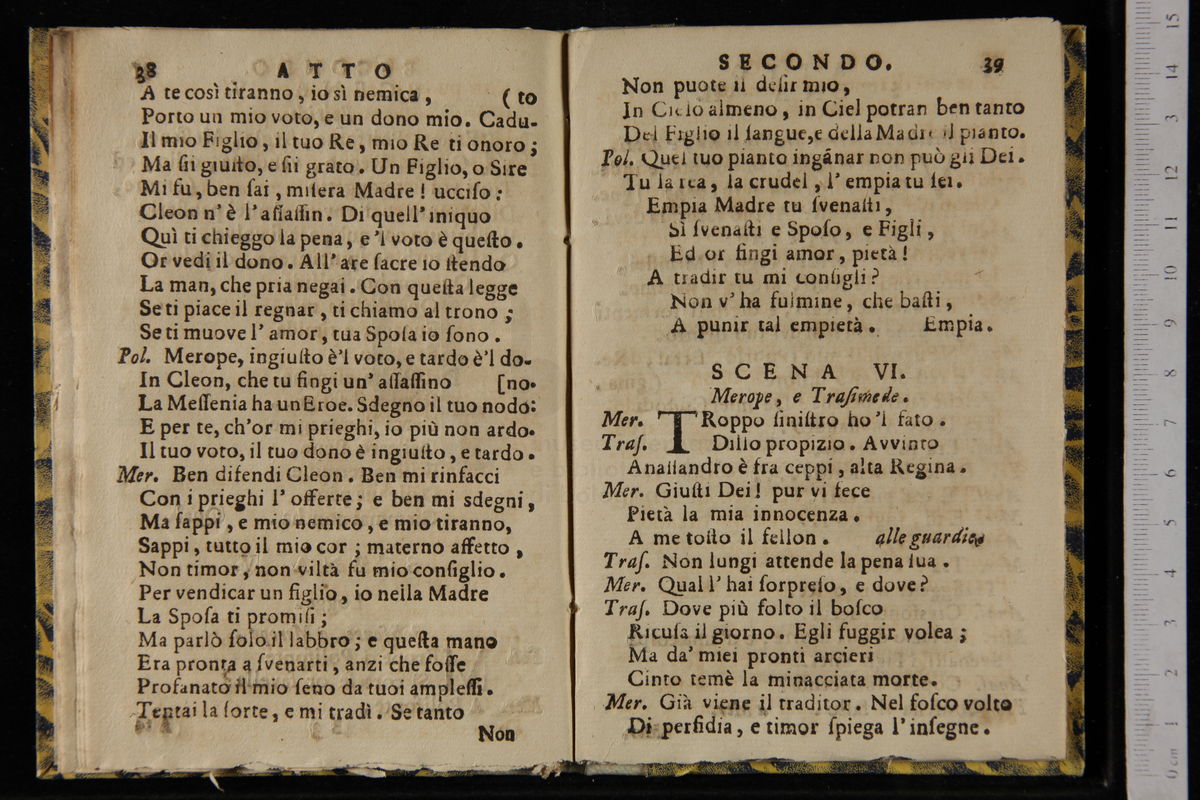 38 ATTO
A te così tiranno, io sì nemica, (to
Porto un mio voto, e un dono mio. Cadu-
Il mio Figlio, il tuo Re, mio Re ti onoro;
Ma ſii giuſto, e ſii grato. Un Figlio, o Sire
Mi fu, ben ſai, miſera Madre! ucciſo:
Cleon n' è l'aſſaſſin. Di quell' iniquo
Quì ti chieggo la pena, e 'l voto è queſto.
Or vedi il dono. All' are ſacre io ſtendo
La man, che pria negai. Con queſta legge
Se ti piace il regnar, ti chiamo al trono;
Se ti muove l' amor, tua Spoſa io ſono.
Pol. Merope, ingiuſto è'l voto, e tardo è'l do-
In Cleon, che tu fingi un' aſſaſſino [no.
La Meſſenia ha un Eroe. Sdegno il tuo nodo:
E per te, ch'or mi prieghi, io più non ardo.
Il tuo voto, il tuo dono è ingiuſto, e tardo.
Mer. Ben difendi Cleon. Ben mi rinfacci
Con i prieghi l' offerte; e ben mi sdegni,
Ma ſappi, e mio nemico, e mio tiranno,
Sappi, tutto il mio cor; materno affetto,
Non timor, non viltà fu mio conſiglio.
Per vendicar un figlio, io nella Madre
La Spoſa ti promiſi;
Ma parlò ſolo il labbro; e queſta mano
Era pronta a ſvenarti, anzi che foſſe
Profanato il mio ſeno da tuoi ampleſſi.
Tentai la ſorte, e mi tradì. Se tanto
Non
SECONDO. 39
Non puote il deſir mio,
In Cielo almeno, in Ciel potran ben tanto
Del Figlio il ſangue, e della Madre il pianto.
Pol. Quel tuo pianto ingãnar non può gli Dei.
Tu la rea, la crudel, l' empia tu ſei.
Empia Madre tu ſvenaſti,
Sì ſvenaſti e Spoſo, e Figli,
Ed or fingi amor, pietà!
A tradir tu mi conſigli?
Non v' ha fulmine, che baſti,
A punir tal empietà. Empia.
SCENA VI.
Merope, e Traſimede.
Mer. TRoppo ſiniſtro ho 'l fato.
Traſ. Dillo propizio. Avvinto
Anaſſandro è fra ceppi, alta Regina.
Mer. Giuſti Dei! pur vi fece
Pietà la mia innocenza.
A me toſto il fellon. alle guardie.
Traſ. Non lungi attende la pena ſua.
Mer. Qual l' hai ſorpreſo, e dove?
Traſ. Dove più folto il boſco
Ricuſa il giorno. Egli fuggir volea;
Ma da' miei pronti arcieri
Cinto temè la minacciata morte.
Mer. Già viene il traditor. Nel foſco volto
Di perfidia, e timor ſpiega l' inſegne.
0 cm 1 2 3 4 5 6 7 8 9 10 11 12 3 14 15